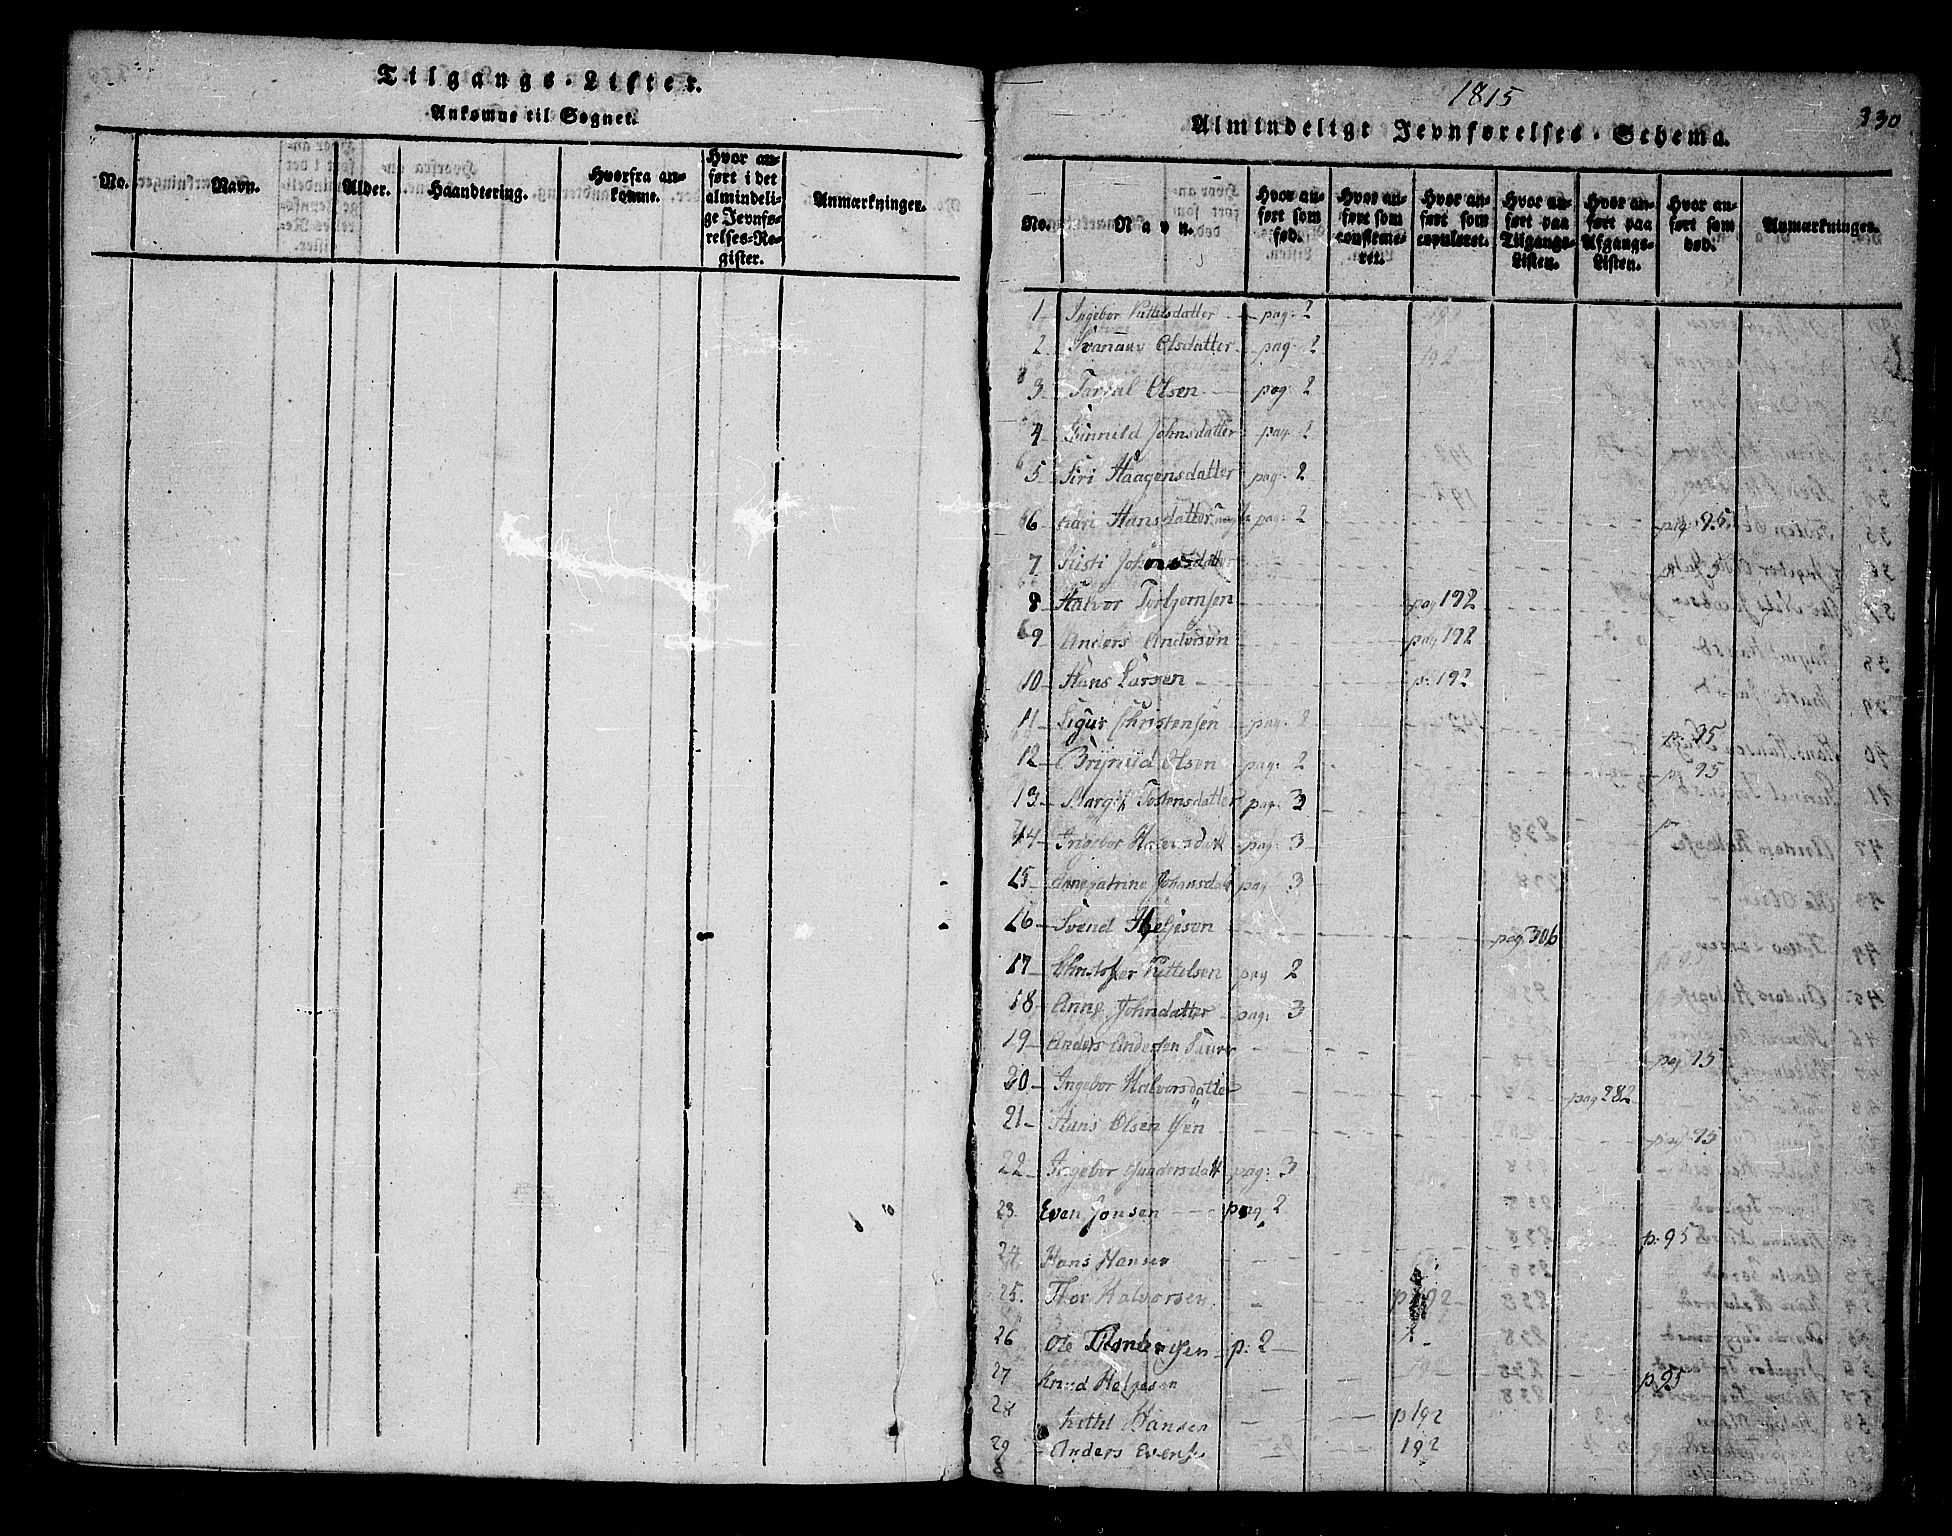 Tilgangs-Lister.
Ankomne til Sognet.
No.
Navn.
Alder.
Haandtering.
Hvorfra ankomne.
Hvor anført i det almindelige Jevnførelses-Register.
Anmærkninger.
1815
330
Almindeligt Jevnførelses-Schema.
No.
Navn.
Hvor anført som fød.
Hvor anført som confirmeret.
Hvor anført som copuleret.
Hvor anført paa Tilgangs-Listen.
Hvor anført paa Afgangs-Listen.
Hvor anført som død.
Anmærkninger.
1 Ingebor Kittelsdatter pag: 2
2 Olsdatter pag: 2
3 Torval Olsen pag: 2
4 Gunnild Johnsdatter pag 2
5 Siri Haagensdatter pag: 2
6 Kari Hansdatter pag: 2 pag 95
7 Kisti p 95
8 Halvor Torbjornsen pag 192
9 Anders Anderson pag 192
10 Hans Larsen p. 192
11 Sigur Christensen pag: 2 p: 95
12 Brynild Olsen pag: 2 p: 95
13 Margit Tostensdatter pag: 3
14 Ingebor pag: 3
15 Annepatrine Johansdat pag 3
16 Svend Heljeson pag. 306
17 Christofer Kittelsen pag 2
18 Anne Johnsdatter pag: 3
19 Anders Andersen pag 95
20 Ingebor Halvorsdatter pag 282
21 Hans Olsen pag 95
22 Ingebor Gundersdatt pag: 3
23. Even Jonsen pag 2
24 Hans Hansen p: 95
25. Thor Halvorsen p 192
26 Ole p: 2
27 Knud Heljesen p 95
28 Kittil Hansen p 192
29 Anders Evens 192